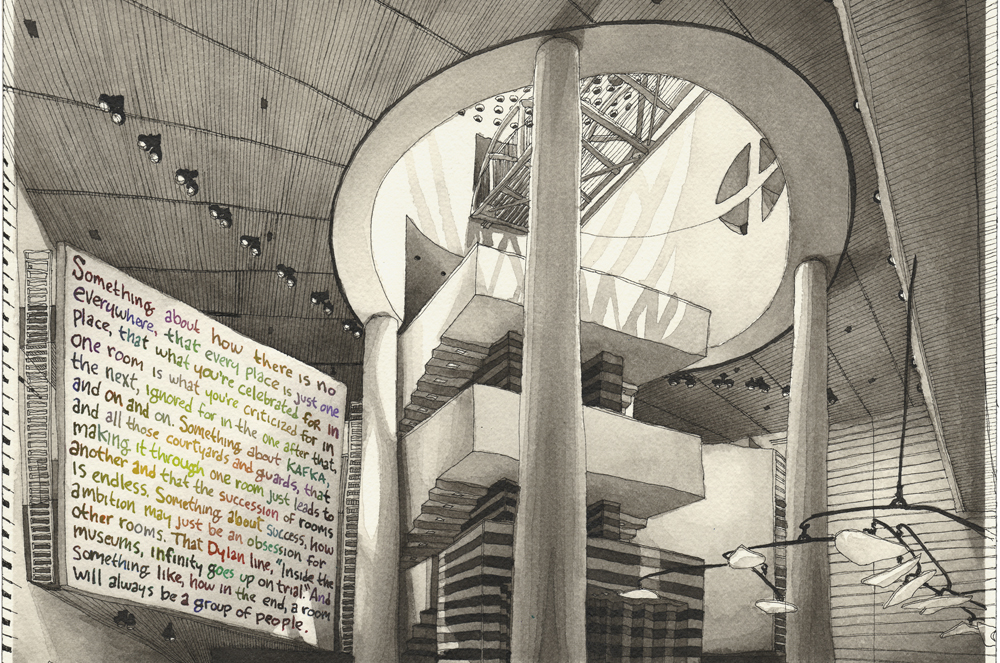 Something about how there is no
everywhere, that every place is just one
place, that what you're celebrated for in
one room is what you're criticized for in
the next, ignored for in the one after that,
and on and on. Something about KAFKA,
and all those courtyards and guards, that
making it through one room just leads to
another and that the succession of rooms
is endless. Something about success, how
ambition may just be an obsession for
other rooms. That Dylan line, "Inside the
museums, infinity goes up on trial." And
something like, how in the end, a room
will always be a group of people.